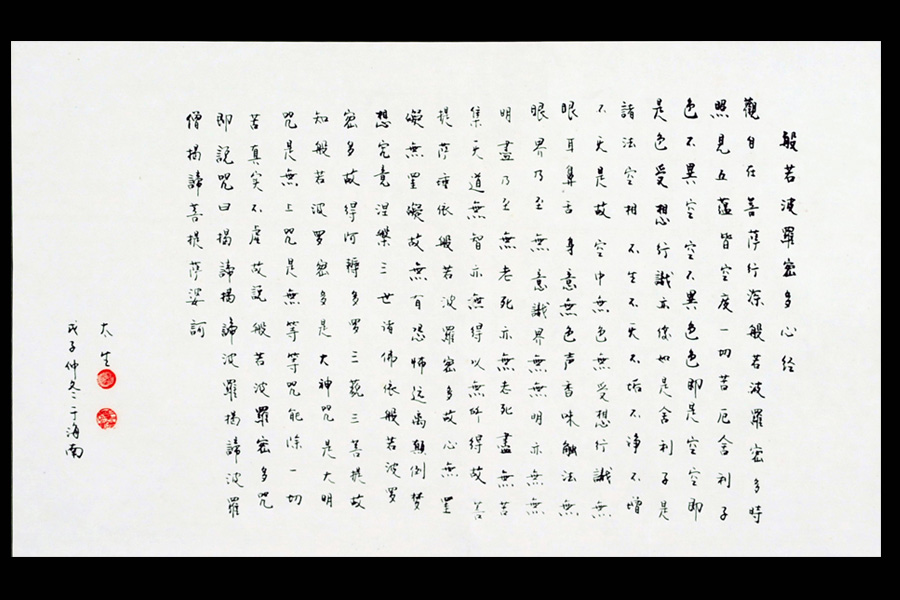 般若波羅密多心经
觀自在菩薩行深般若波羅密多時
照見五蕴皆空度一切苦厄舍利子
色不異空空不異色色即是空空即
是色受想行識亦復如是舍利子是
諸法空相不生不灭不垢不净不增
不灭是故空中無色無受想行識無
眼耳鼻舌身意無色声香味触法無
眼界乃至無意識界無無明亦無無
明盡乃至無老死亦無老死盡無苦
集灭道無智亦無得以無所得故菩
提萨埵依般若波羅密多故心無罣
礙無罣礙故無有恐怖远离顛倒梦
想究竟涅槃三世诸佛依般若波罗
密多故得阿耨多罗三藐三菩提故
知般若波罗密多是大神咒是大明
咒是無上咒是無等等咒能除一切
苦真实不虚故説般若波羅密多咒
即説咒曰揭諦揭諦波羅揭諦波羅
僧揭諦菩提萨婆訶
太生
戊子仲冬于海南